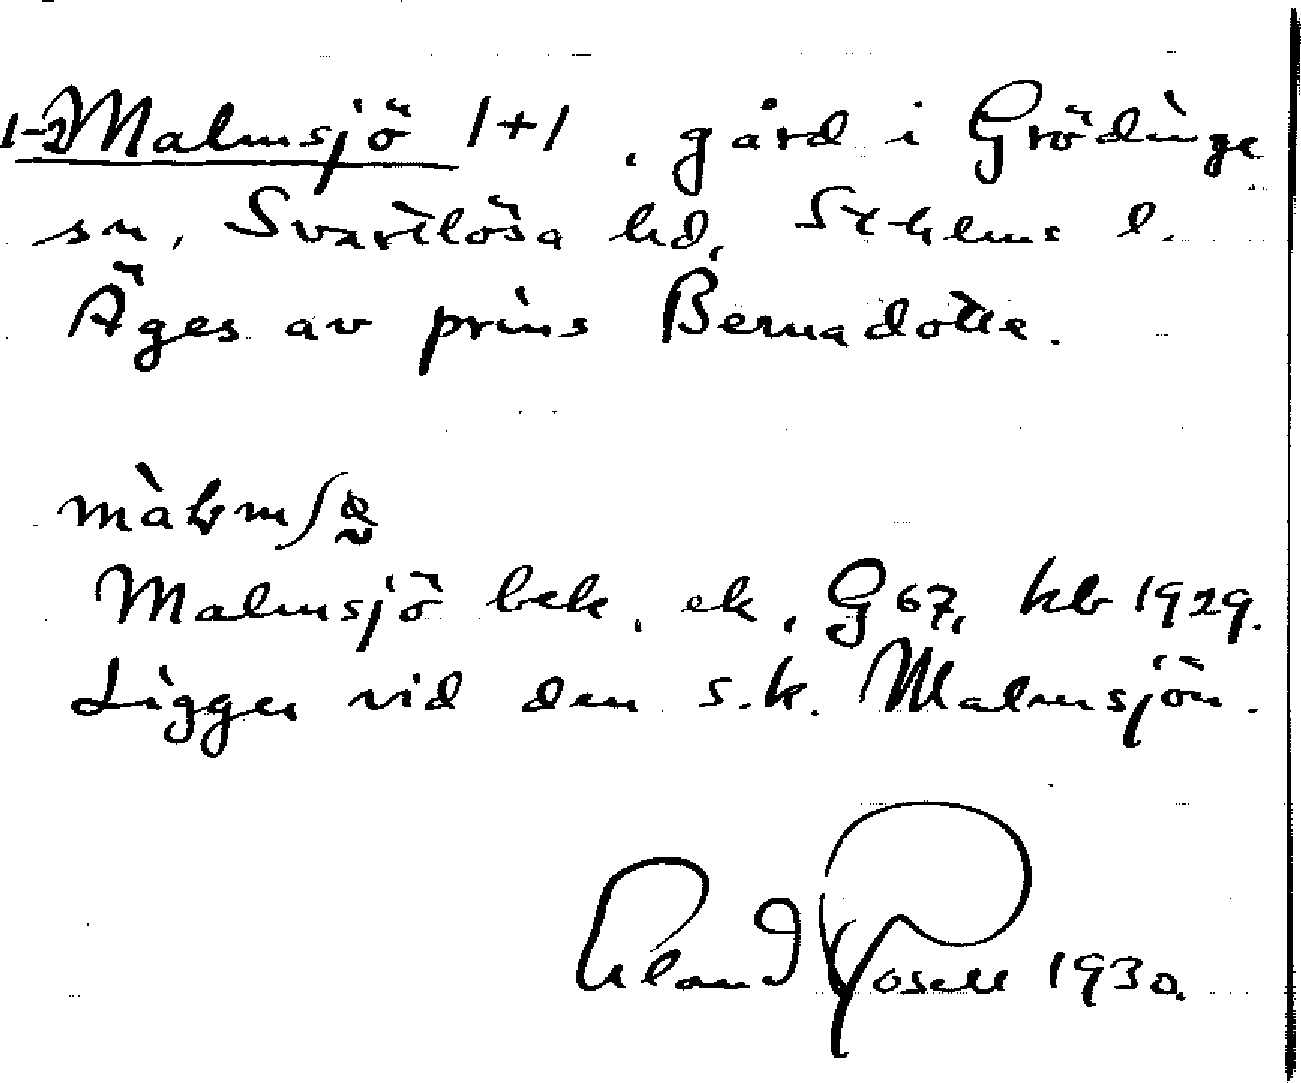 1-2 Malmsjö 1+1, gård i Grödinge
sn, Svartlösa hd, Sthlms l.
Äges av prins Bernadotte.
Malmsjö bek. ek., G 67, kb 1929.
Ligger vid den s.k. Malmsjön.
Erland Rosell 1930.